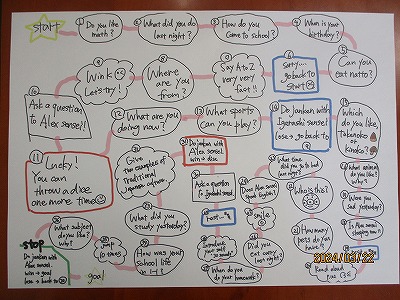 start
① Do you like
math?
② What did you do
last night?
③ How do you
come to school?
④ When is your
birthday?
⑤ Can you
eat natto?
⑥ Sorry...
go back to
start
⑦ Say A to Z
very very
fast!!
⑧ Where
are you
from?
⑨ Wink
Let's try!
⑩ Ask a question
to Alex sensei!!
⑪ Lucky!
You can
throw a dice
one more time
⑫ What are you
doing now?
⑬ What sports
can you play?
⑭ Do janken with
Igarashi sensei
lose → go back to
⑮ Which
do you like,
Takenoko
or
kinoko?
What animal
do you like?
Why?
Were you
sad yesterday?
Is Alex sensei
now?
Read aloud
How many
pets do you
have?
Who is this?
What time
did you go to bed
last night?
Does Alex sensei
speak English?
smile
Did you
eat curry
last night?
When do you
do your homework?
Introduce
your self
Ask a question
to Igarashi sensei
Do janken with
Alex sensei.
win →
Give
two examples of
traditional
Japanese culture.
What did you
study yesterday?
How was your
school life
in J.H.
jump
10 times
What subject
do you like?
Why?
stop
Do janken with
Alex sensei
win → goal
lose → back to
goal
2024/03/22